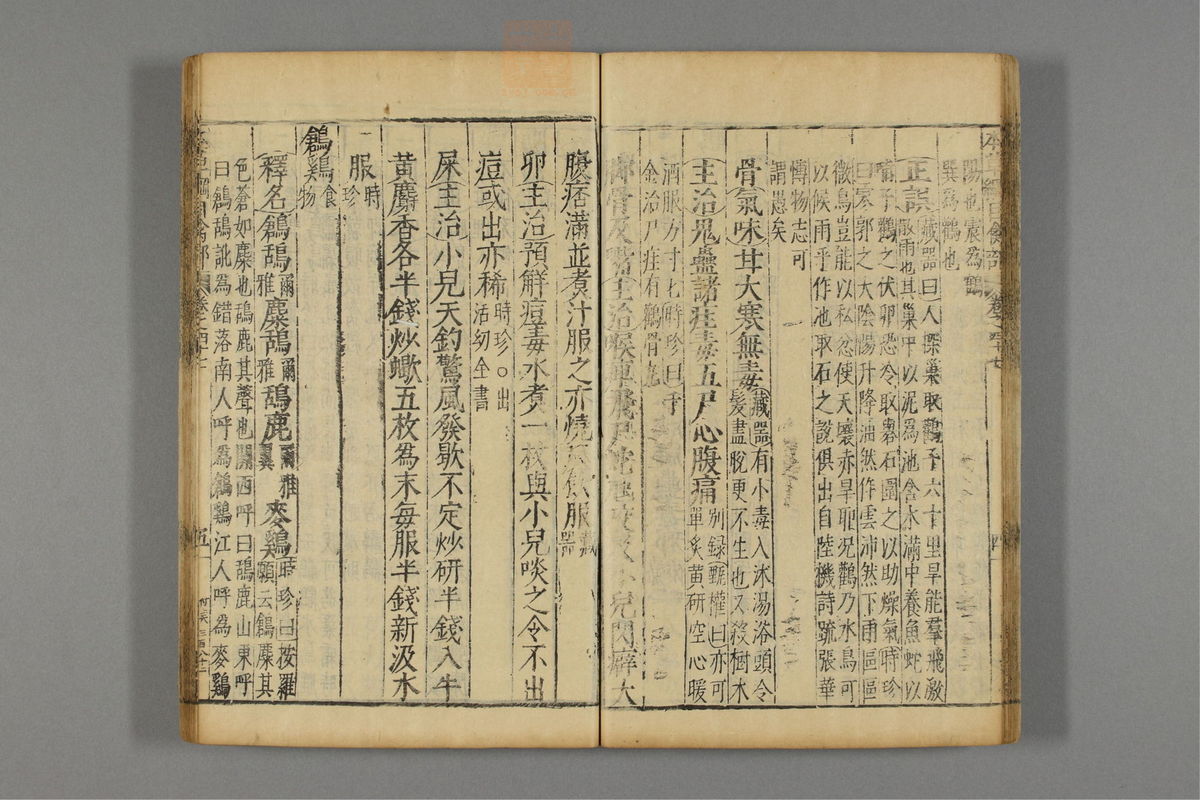 陽也震為鶴
巽為鸛也
正誤藏器曰人探巢取鸛子六十里旱能羣飛激
散雨也其巢中以泥為池含水滿中養魚蛇以
哺子鸛之伏卵恐冷取礜石圍之以助燥氣時珍
曰寥郭之大陰陽升降油然作雲沛然下雨區區
微鳥豈能以私忿使天壤赤旱耶況鸛乃水鳥可
以候雨乎作池取石之說俱出自陸機詩疏張華
博物志可
謂愚矣
骨氣味甘大寒無毒藏器有小毒入沐湯浴頭令
髮盡脫更不生也又殺樹木
主治鬼蠱諸疰毒五尸心腹痛別錄甄權曰亦可
單炙黄研空心暖
酒服方寸匕時珍曰千
金治尸疰有鸛骨丸
脚骨及觜主治喉痺飛尸蛇虺咬及小兒閃癖大
腹痞滿並煮汁服之亦燒灰飲服藏器
卵主治預解痘毒水煮一枚與小兒啖之令不出
痘或出亦稀時珍○出活幼全書
屎主治小兒天釣驚風發歇不定炒研半錢入牛
黄麝香各半錢炒蠍五枚為末每服半錢新汲水
服時珍
鶬雞食物
釋名鶬鴰爾雅麋鴰爾雅鴰鹿爾雅翼麥雞時珍曰按羅
願云鶬麋其
色蒼如麋也鴰鹿其聲也關西呼曰鴰鹿山東呼
曰鶬鴰訛為錯落南人呼為鶬鷄江人呼為麥鷄
五